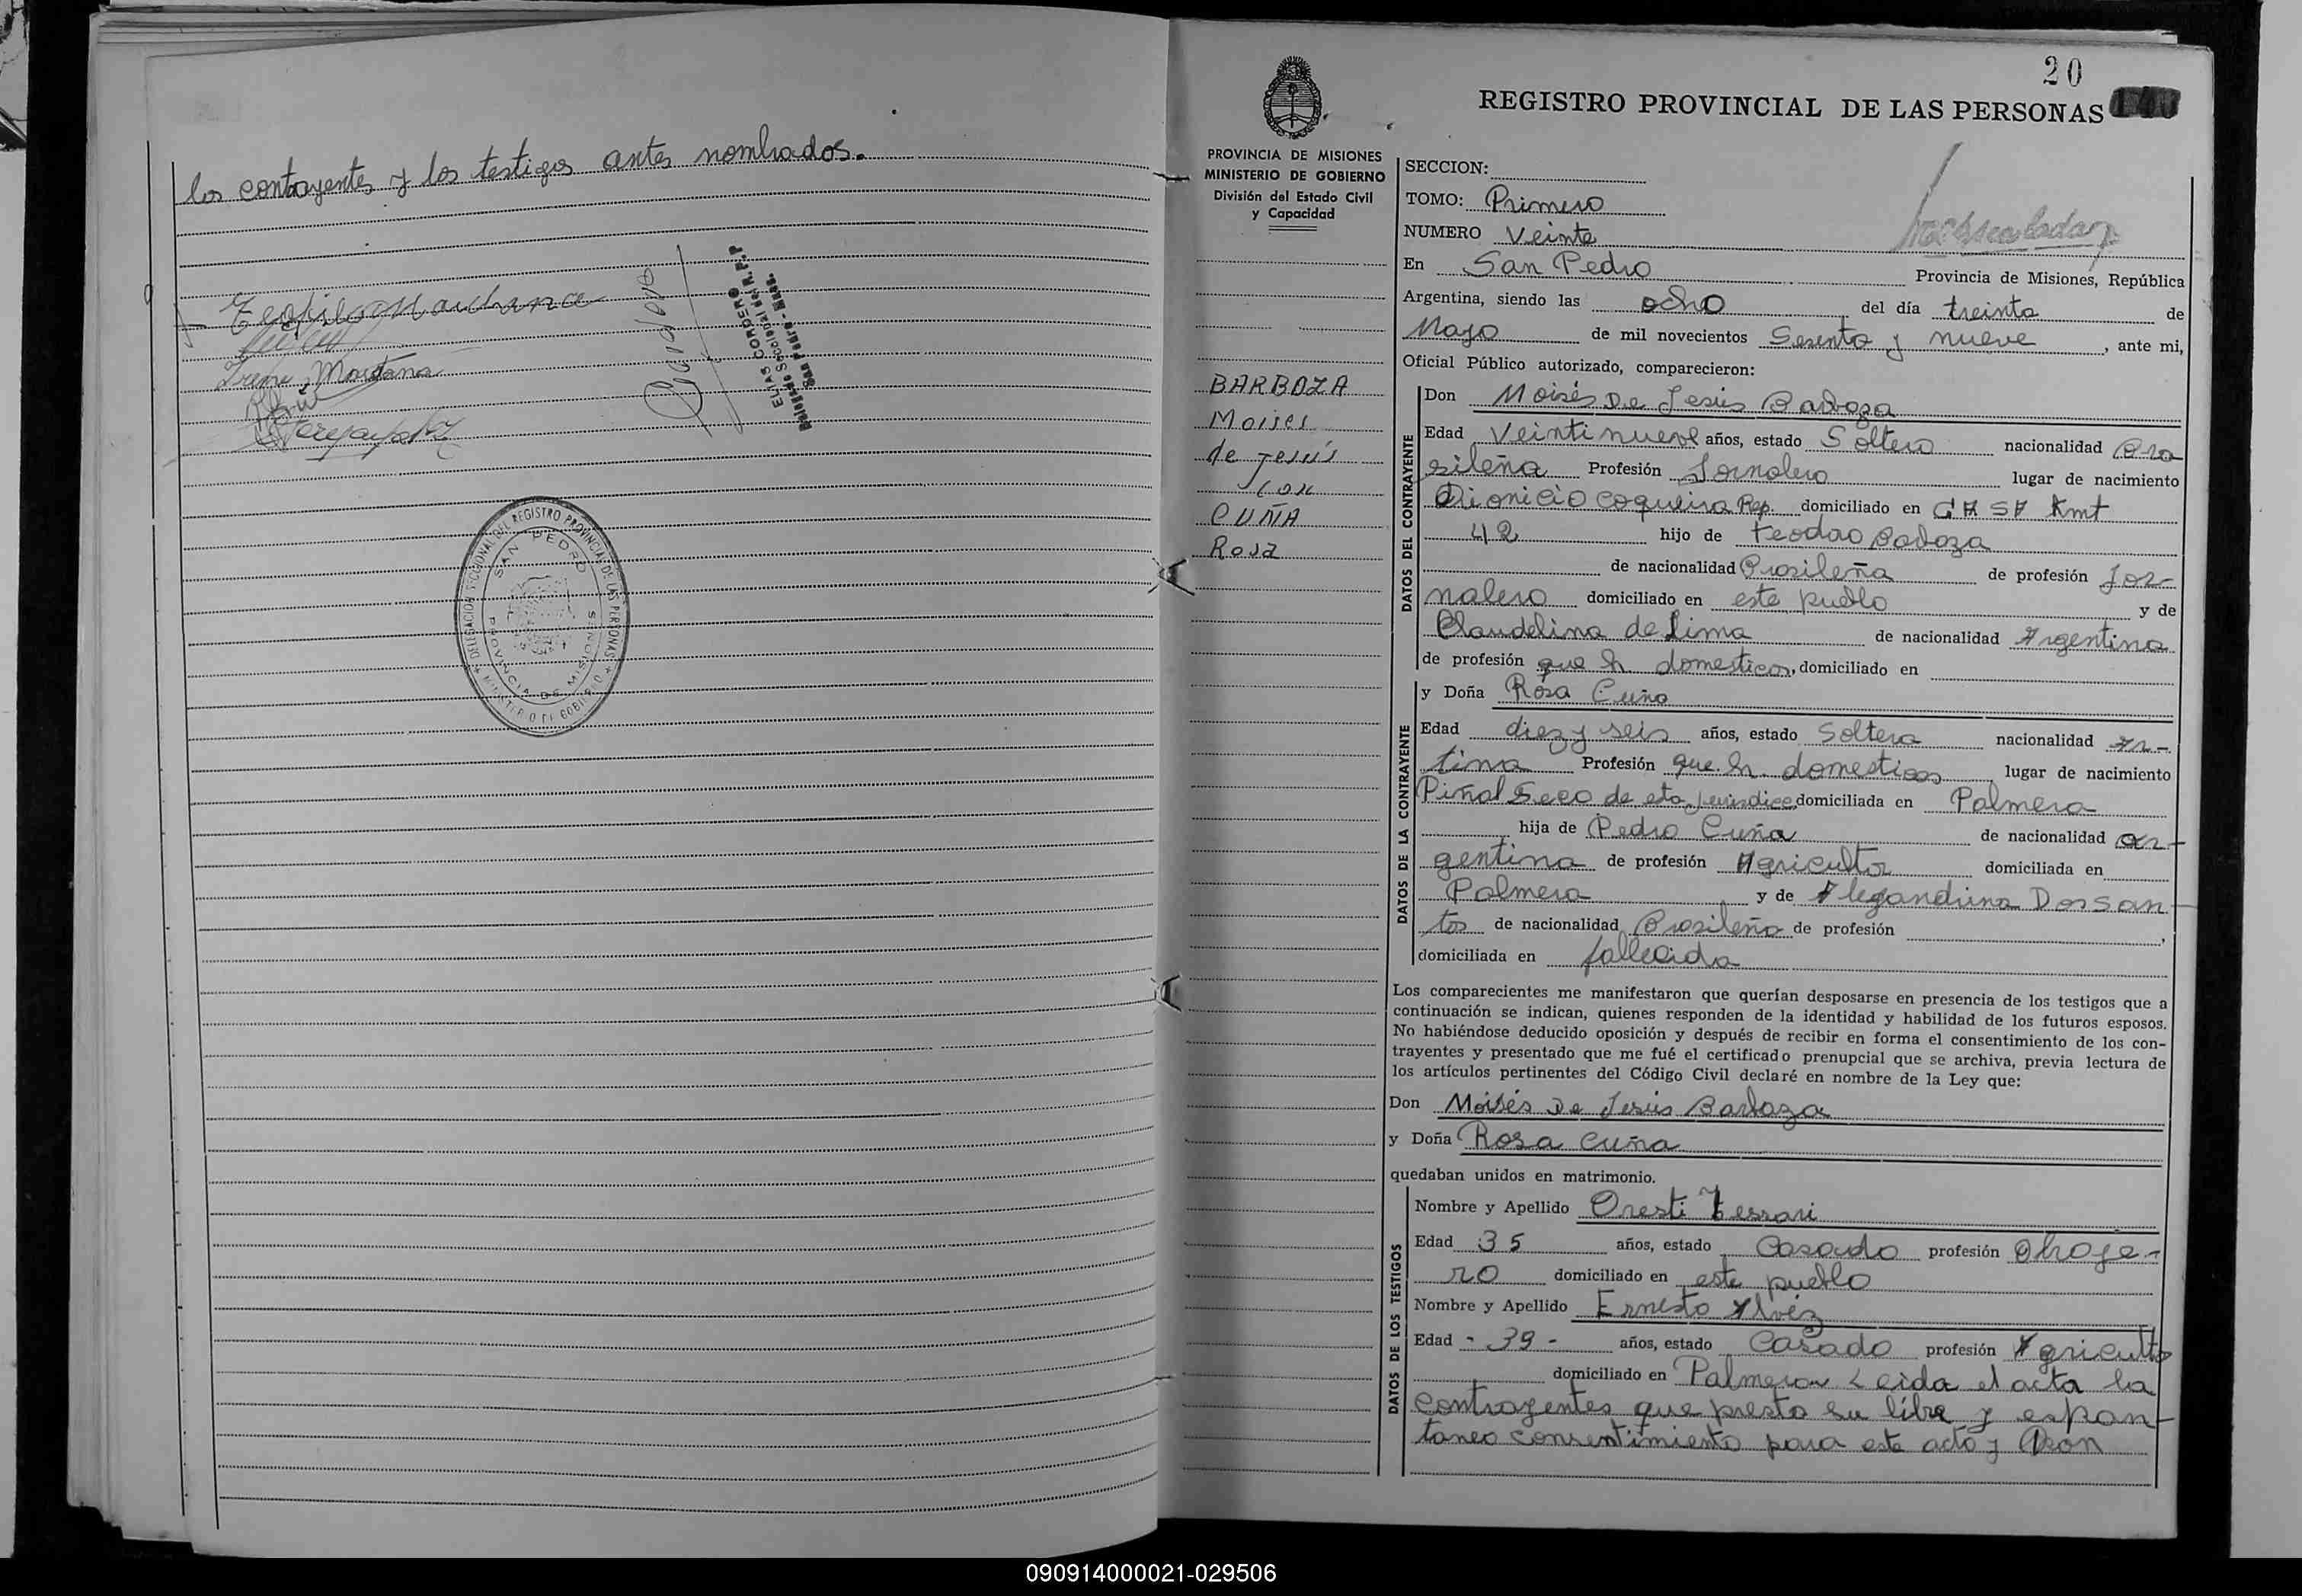 los contrayentes y los testigos antes nombrados.
Irene Montana
Cordero
ELIAS CORDERO
San Pedro - Mnes.
DELEGACION SECCIONAL DEL REGISTRO PROVINCIAL DE LAS PERSONAS
MINISTERIO DE GOBIERNO
SAN PEDRO
PROVINCIA DE MISIONES
20
REGISTRO PROVINCIAL DE LAS PERSONAS
PROVINCIA DE MISIONES
MINISTERIO DE GOBIERNO
División del Estado Civil
y Capacidad
BARBOZA
Moises
de Jesús
con
CUÑA
Rosa
SECCION:
TOMO: Primero
NUMERO Veinte
En San Pedro Provincia de Misiones, República
Argentina, siendo las ocho del día treinta de
Mayo de mil novecientos Sesenta y nueve, ante mi,
Oficial Público autorizado, comparecieron:
DATOS DEL CONTRAYENTE
Don Moisés De Jesús Barboza
Edad Veintinueve años, estado Soltero nacionalidad Bra
sileña Profesión Jornalero lugar de nacimiento
Dionicio Coqueira Rep. domiciliado en Kmt
42 hijo de Teodro Barboza
de nacionalidad Brasileña de profesión Jor-
nalero domiciliado en este pueblo y de
Claudelina de Lima de nacionalidad Argentina
de profesión que h domesticos, domiciliado en
DATOS DE LA CONTRAYENTE
y Doña Rosa Cuña
Edad diez y seis años, estado Soltera nacionalidad Ar-
tina Profesión que h. domesticos lugar de nacimiento
Piñal Seco de esta jurisdicc domiciliada en Palmera
hija de Pedro Cuña de nacionalidad ar-
gentina de profesión Agricultor domiciliada en
Palmera y de Alegandrina Dos San
tos de nacionalidad Brasileña de profesión
domiciliada en fallecida
Los comparecientes me manifestaron que querían desposarse en presencia de los testigos que a
continuación se indican, quienes responden de la identidad y habilidad de los futuros esposos.
No habiéndose deducido oposición y después de recibir en forma el consentimiento de los con-
trayentes y presentado que me fué el certificado prenupcial que se archiva, previa lectura de
los artículos pertinentes del Código Civil declaré en nombre de la Ley que:
Don Moisés De Jesús Barboza
y Doña Rosa Cuña
quedaban unidos en matrimonio.
DATOS DE LOS TESTIGOS
Nombre y Apellido Oresti Tessari
Edad 35 años, estado Casado profesión Obraje-
ro domiciliado en este pueblo
Nombre y Apellido Ernesto Alvez
Edad - 39 - años, estado Casado profesión Agriculto
domiciliado en Palmera Leida el acta la
contrayentes que presto su libre y espon-
taneo consentimiento para este acto y
090914000021-029506